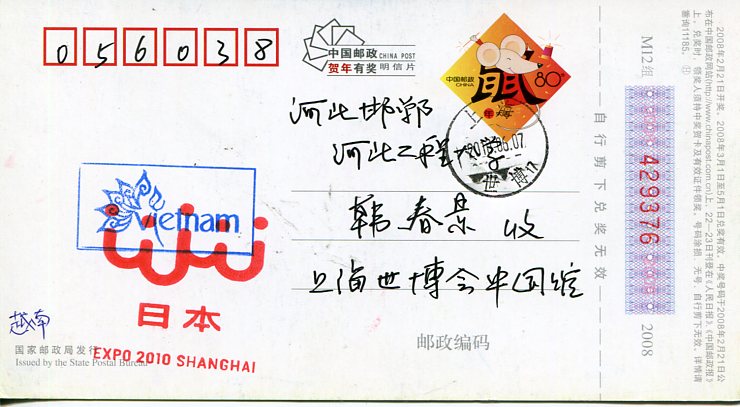 056038
中国邮政 CHINA POST
贺年有奖 明信片
中国邮政
CHINA
鼠
年
80分
上海
2010.06.07
世博
河北邯郸
河北工程大学
韩春景 收
上海世博会中国馆
Vietnam
日本
EXPO 2010 SHANGHAI
越南
国家邮政局发行
Issued by the State Postal Bureau
邮政编码
自行剪下兑奖无效
M12组
429376
2008
2008年2月21日开奖。2008年3月1日至5月1日兑奖有效。中奖号码于2008年2月21日公
布在中国邮政网站(http://www.chinapost.com.cn)上，22—23日刊登在《人民日报》、《中国邮政报》
上，兑奖时，领奖人须持中奖贺卡及有效证件领奖。号码涂损、无号，自行剪下无效，详情请
垂询11185。